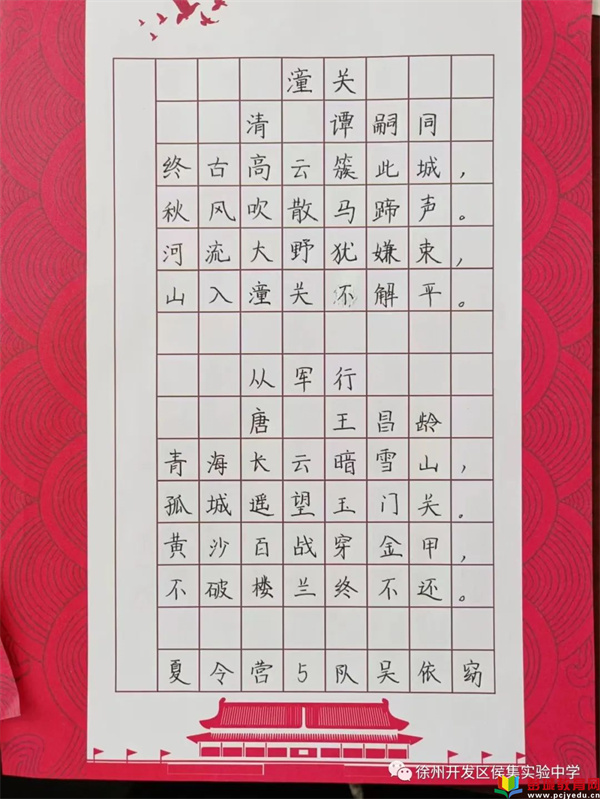 潼关
清 谭嗣同
终古高云簇此城，
秋风吹散马蹄声。
河流大野犹嫌束，
山入潼关不解平。
从军行
唐 王昌龄
青海长云暗雪山，
孤城遥望玉门关。
黄沙百战穿金甲，
不破楼兰终不还。
夏令营5队吴依窈
徐州开发区侯集实验中学
www.pcjyedu.cn